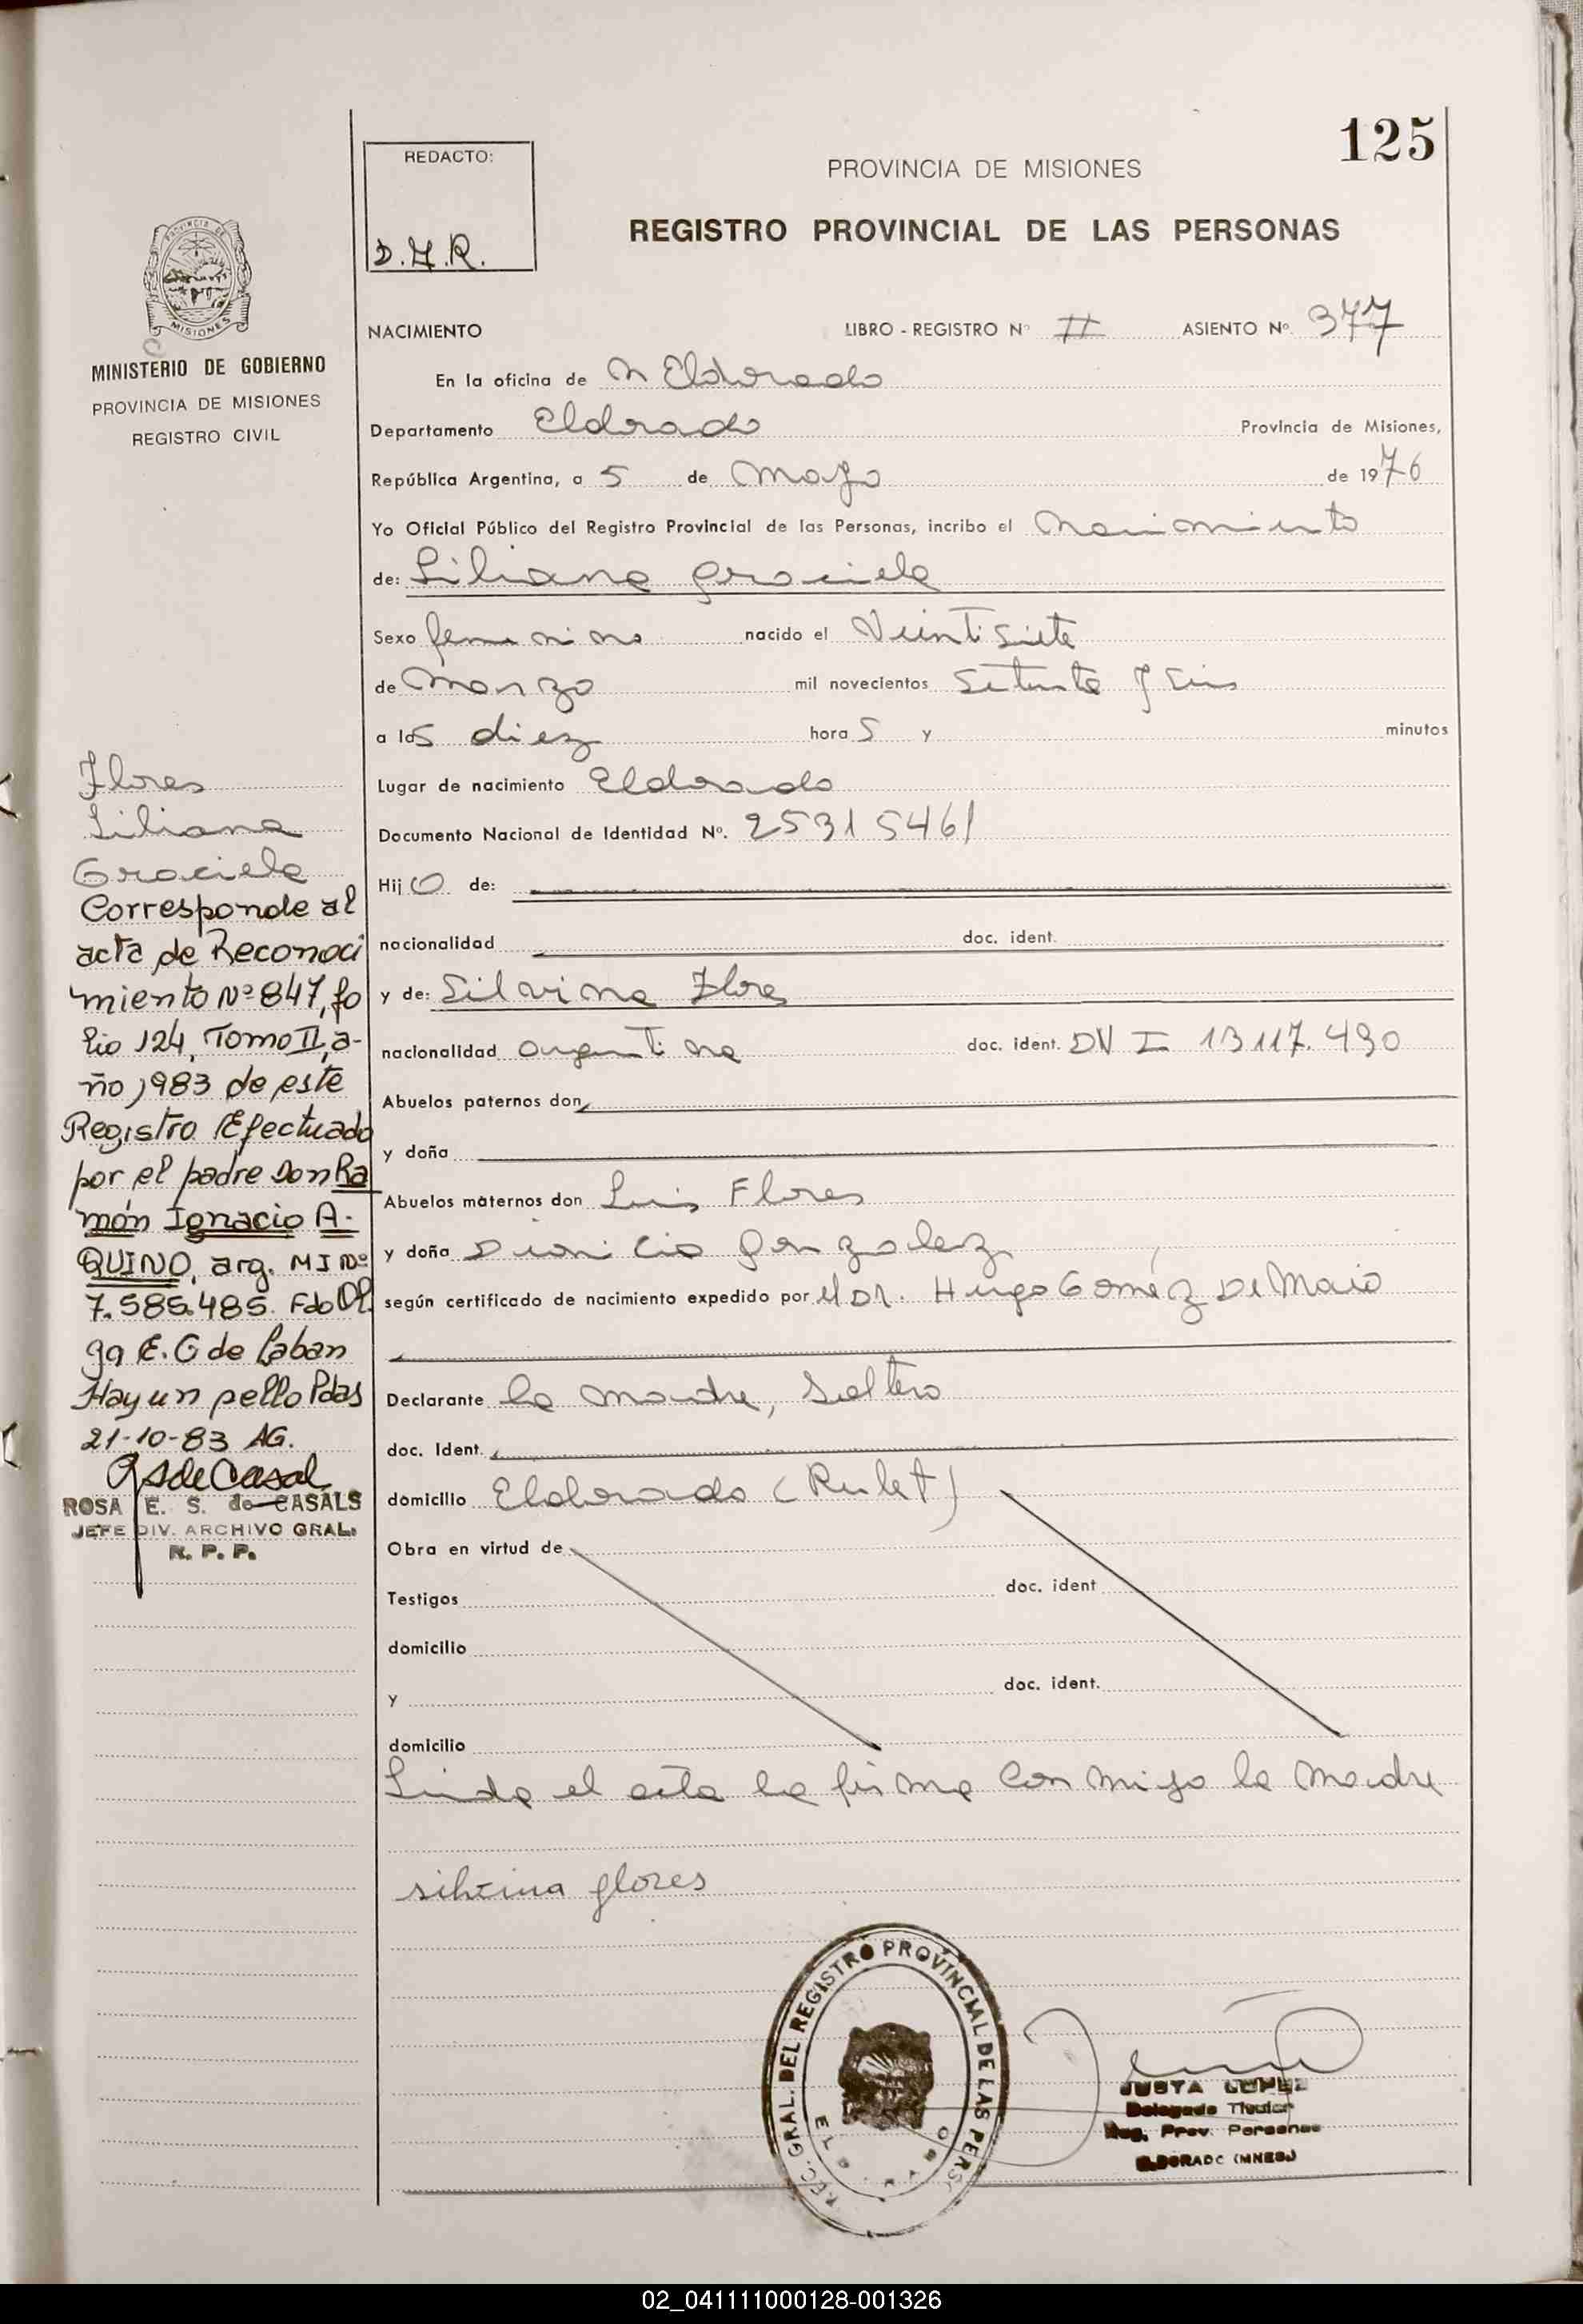 125
REDACTO:
D.J.R.
PROVINCIA DE MISIONES
REGISTRO PROVINCIAL DE LAS PERSONAS
MISIONES
MINISTERIO DE GOBIERNO
PROVINCIA DE MISIONES
REGISTRO CIVIL
NACIMIENTO LIBRO - REGISTRO Nº II ASIENTO Nº 377
En la oficina de Eldorado
Departamento Eldorado Provincia de Misiones,
República Argentina, a 5 de Mayo de 1976
Yo Oficial Público del Registro Provincial de las Personas, incribo el Nacimiento
de: Liliana Graciela
Sexo femenino nacido el Veintisiete
de Marzo mil novecientos Setenta y Seis
a las diez horas y minutos
Lugar de nacimiento Eldorado
Documento Nacional de Identidad Nº. 25315461
Hij de:
nacionalidad doc. ident.
y de: Silvina Flores
nacionalidad argentina doc. ident. DNI 13117.490
Abuelos paternos don
y doña
Abuelos maternos don Luis Flores
y doña Dionicia Gonzalez
según certificado de nacimiento expedido por el Dr. Hugo Goméz De Maio
Declarante la madre, Soltera
doc. Ident.
domicilio Eldorado
Obra en virtud de
Testigos doc. ident
domicilio
y doc. ident.
domicilio
Leida el acta la firma con migo la Madre
silvina flores
Flores
Liliana
Graciela
Corresponde al
acta de Reconoci
miento Nº 847, fo
lio 124, Tomo II, a-
ño 1983 de este
Registro Efectuado
por el padre Don Ra
món Ignacio A-
QUINO, arg. MI Nº
7.585.485. Fdo
ga E. G de Laban
Hay un sello Pdas
21-10-83 AG.
ROSA E. S. de CASALS
JEFE DIV. ARCHIVO GRAL.
R. P. P.
GRAL. DEL REGISTRO PROVINCIAL DE LAS PERS
JUSTA LOPEZ
Delegada Titular
Reg. Prov. Personas
ELDORADO (MNES.)
02_041111000128-001326